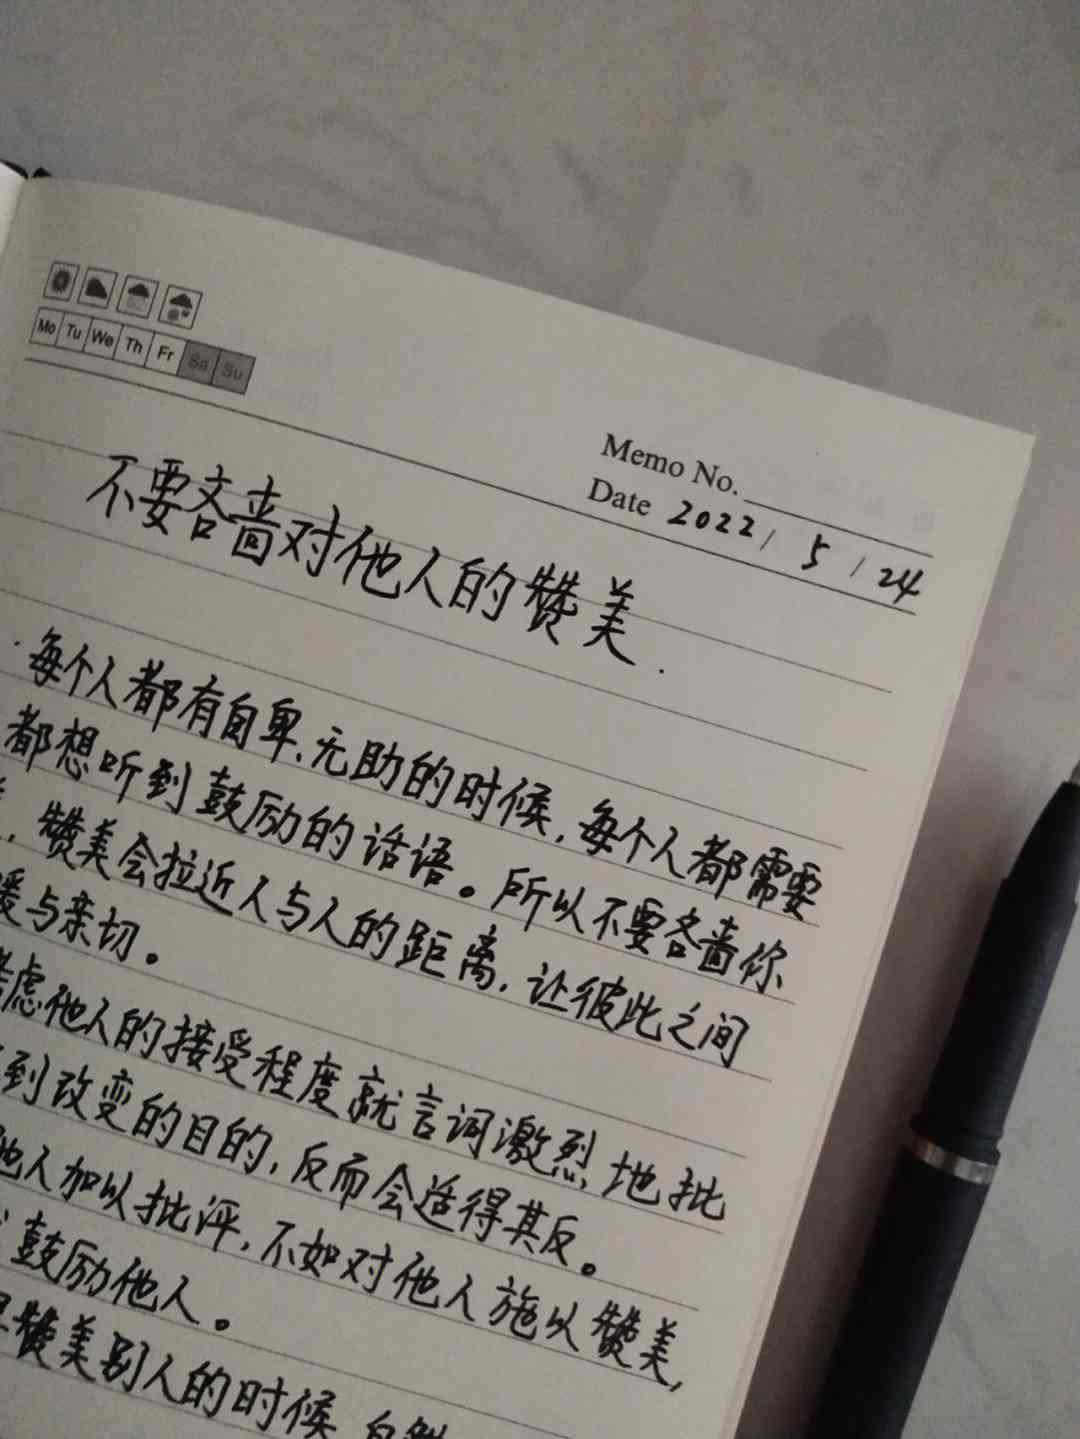 Mo Tu We Th Fr Sa Su
Memo No.
Date 2022 / 5 / 24
不要吝啬对他人的赞美.
·每个人都有自卑、无助的时候,每个人都需要
都想听到鼓励的话语。所以不要吝啬你
,赞美会拉近人与人的距离,让彼此之间
暖与亲切。
考虑他人的接受程度就言词激烈地批
到改变的目的,反而会适得其反。
他人加以批评,不如对他人施以赞美,
鼓励他人。
赞美别人的时候